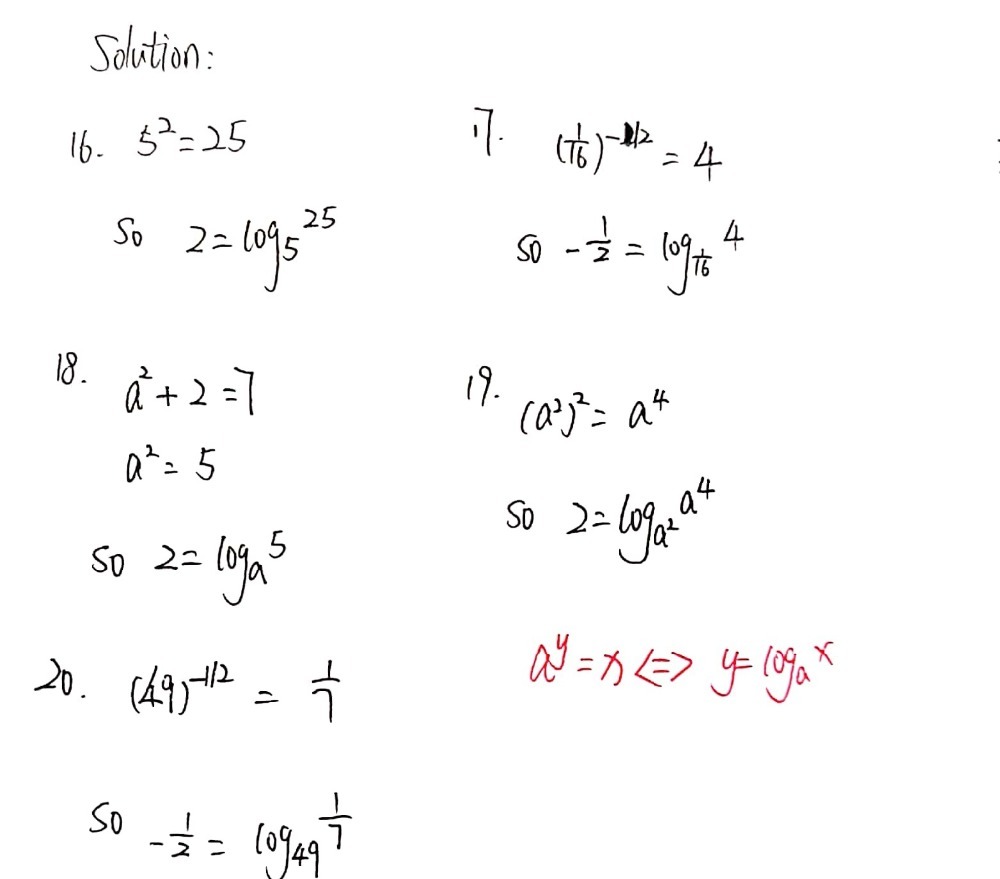 Solution:
16. 5² = 25
So 2 = log₅ 25
17. (1/16)^(-1/2) = 4
So -1/2 = log_(1/16) 4
18. a² + 2 = 7
a² = 5
So 2 = logₐ 5
19. (a²)² = a⁴
So 2 = log_(a²) a⁴
20. (49)^(-1/2) = 1/7
So -1/2 = log₄₉ 1/7
a^y = x <=> y = logₐ x